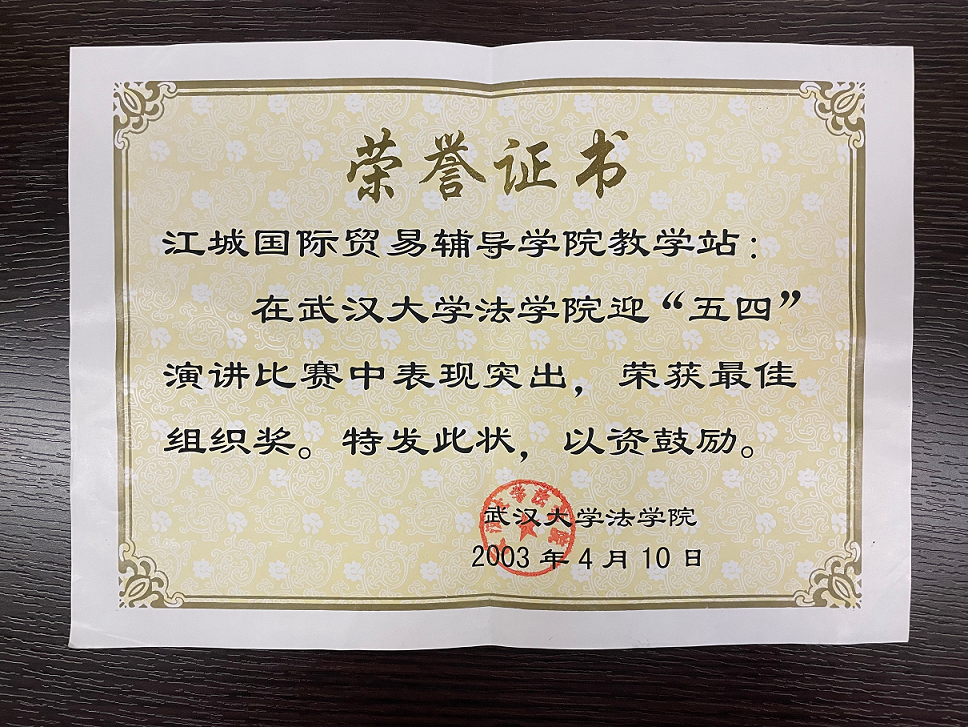 荣誉证书
江城国际贸易辅导学院教学站：
在武汉大学法学院迎“五四”
演讲比赛中表现突出，荣获最佳
组织奖。特发此状，以资鼓励。
武汉大学法学院
2003年4月10日